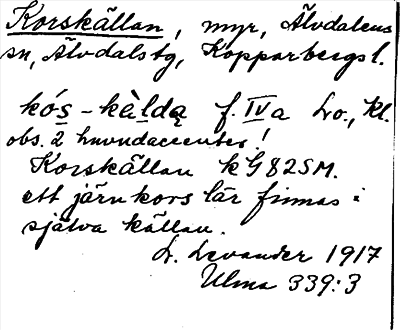 Korskällan, myr, Älvdalens
sn, Älvdalstg, Kopparbergs l.
kós-kằldą f. IV a Lo., Kl.
obs. 2 huvudaccenter!
Korskällan k G 82 SM.
ett järnkors lär finnas i
själva källan.
L. Levander 1917
Ulma 339:3